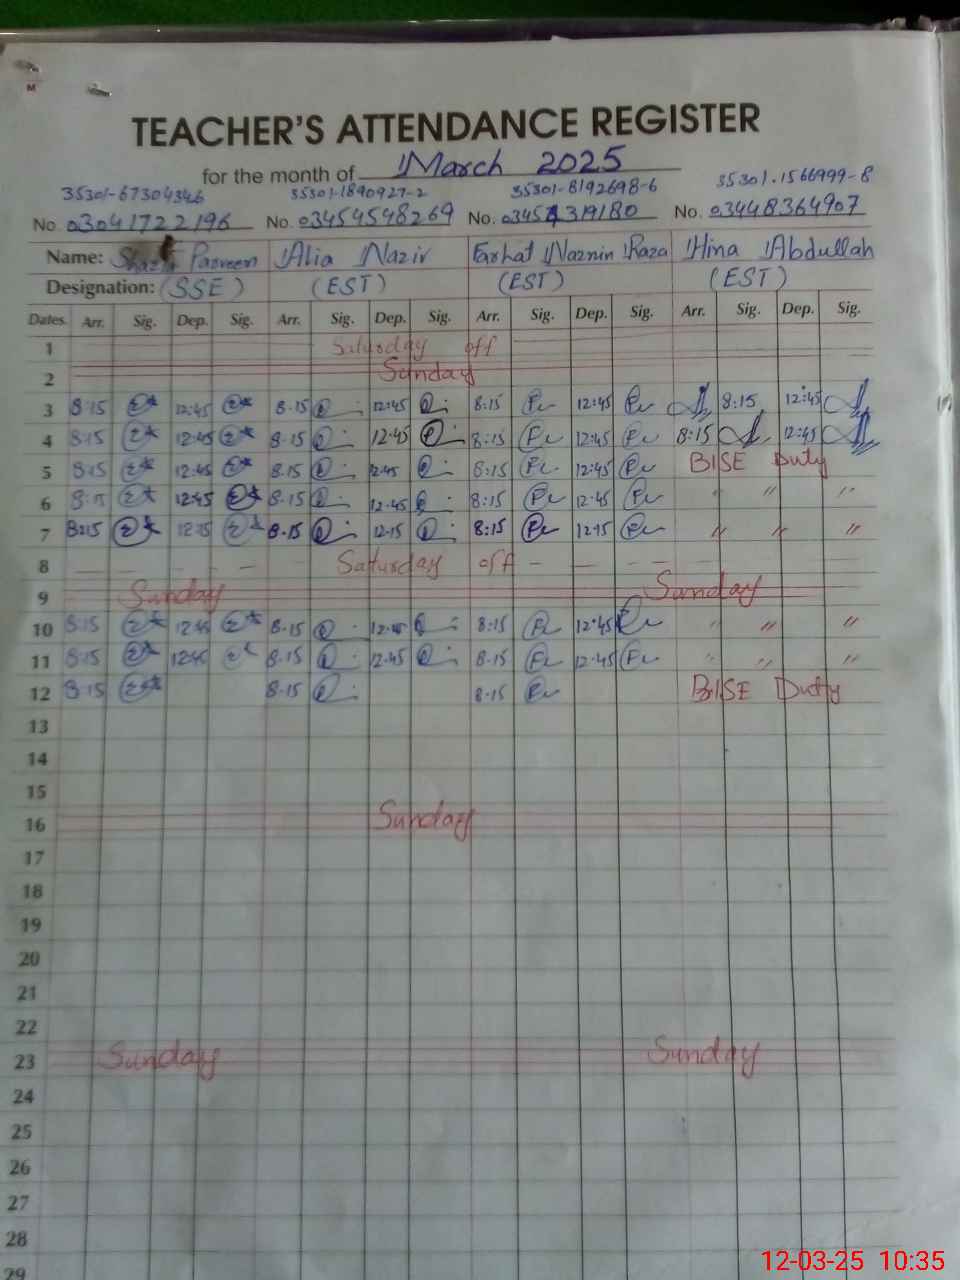 M
TEACHER'S ATTENDANCE REGISTER
for the month of March 2025
35301-67304346 35301-1890927-2 35301-8192698-6 35301.1566999-8
No. 03041722196 No. 03454548269 No. 03454319180 No. 03448364907
Name: Parveen Alia Nazir Farhat Naznin Raza Hina Abdullah
Designation: (SSE) (EST) (EST) (EST)
Dates. Arr. Sig. Dep. Sig. Arr. Sig. Dep. Sig. Arr. Sig. Dep. Sig. Arr. Sig. Dep. Sig.
1 Saturday off
2 Sunday
3 8:15 12:45 8.15 12:45 8:15 12:45 8:15 12:45
4 8:15 12:45 8.15 12:45 8:15 12:45 8:15 12:45
5 8:15 12:45 8.15 12.45 8:15 12:45 BISE Duty
6 8:15 12:45 8.15 12.45 8:15 12.45 " " "
7 8:15 12:15 8.15 12.15 8:15 12:15 " " "
8 Saturday off
9 Sunday Sunday
10 8:15 12:45 8.15 12.45 8:15 12:45 " " "
11 8.15 12:45 8.15 12.45 8.15 12.45 " " "
12 8.15 8.15 8.15 BISE Duty
13
14
15
16 Sunday
17
18
19
20
21
22
23 Sunday Sunday
24
25
26
27
28
29
12-03-25 10:35